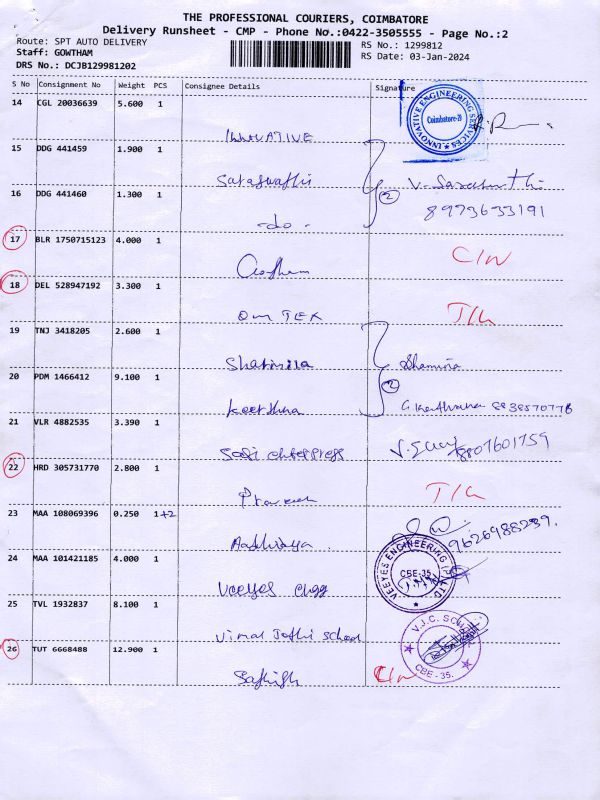 THE PROFESSIONAL COURIERS, COIMBATORE
Delivery Runsheet - CMP - Phone No.:0422-3505555 - Page No.:2
Route: SPT AUTO DELIVERY
RS No.: 1299812
Staff: GOWTHAM
RS Date: 03-Jan-2024
DRS No.: DCJB129981202
S No Consignment No Weight PCS Consignee Details Signature
14 CGL 20036639 5.600 1
INNOVATIVE
INNOVATIVE ENGINEERING SERVICES
Coimbatore-21
15 DDG 441459 1.900 1
Saraswathi
16 DDG 441460 1.300 1
-do-
2
8973633191
17 BLR 1750715123 4.000 1
C/N
18 DEL 528947192 3.300 1
OM TEX
19 TNJ 3418205 2.600 1
Sharmila
Sharmila
20 PDM 1466412 9.100 1
Keerthna
2
21 VLR 4882535 3.390 1
22 HRD 305731770 2.800 1
Praveen
23 MAA 108069396 0.250 1+2
9626988239.
24 MAA 101421185 4.000 1
Veeyes Engg
VEEYES ENGINEERING (P) LTD
CBE-35.
25 TVL 1932837 8.100 1
Vimal Jothi School
V.J.C. SCHOOL
CBE-35.
26 TUT 6668488 12.900 1
Sathish
C/N